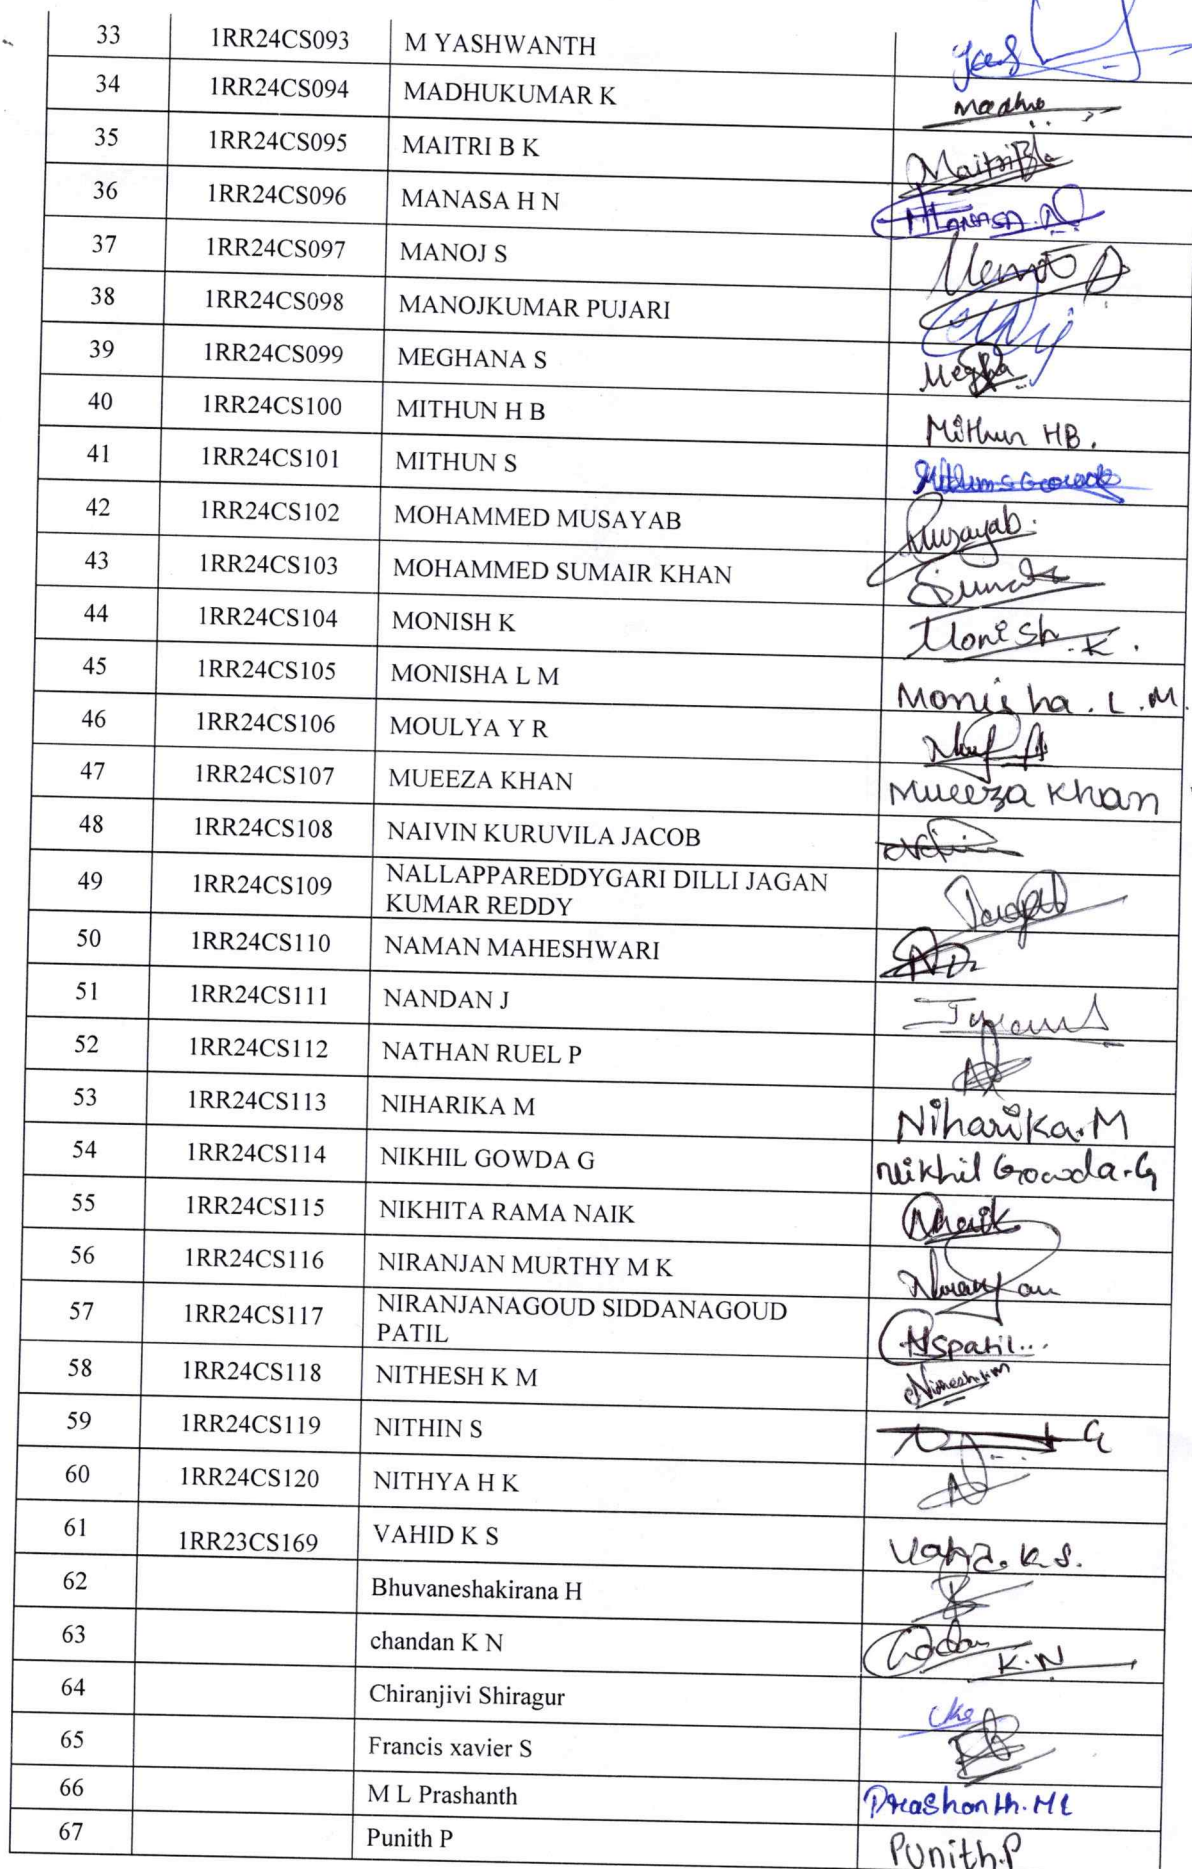 33 1RR24CS093 M YASHWANTH
34 1RR24CS094 MADHUKUMAR K Madhu
35 1RR24CS095 MAITRI B K
36 1RR24CS096 MANASA H N
37 1RR24CS097 MANOJ S
38 1RR24CS098 MANOJKUMAR PUJARI
39 1RR24CS099 MEGHANA S
40 1RR24CS100 MITHUN H B Mithun HB.
41 1RR24CS101 MITHUN S
42 1RR24CS102 MOHAMMED MUSAYAB Musayab.
43 1RR24CS103 MOHAMMED SUMAIR KHAN
44 1RR24CS104 MONISH K Monish.K.
45 1RR24CS105 MONISHA L M Monisha.L.M.
46 1RR24CS106 MOULYA Y R
47 1RR24CS107 MUEEZA KHAN Mueeza Khan
48 1RR24CS108 NAIVIN KURUVILA JACOB
49 1RR24CS109 NALLAPPAREDDYGARI DILLI JAGAN
KUMAR REDDY
50 1RR24CS110 NAMAN MAHESHWARI
51 1RR24CS111 NANDAN J
52 1RR24CS112 NATHAN RUEL P
53 1RR24CS113 NIHARIKA M Niharika.M
54 1RR24CS114 NIKHIL GOWDA G Nikhil Gowda.G
55 1RR24CS115 NIKHITA RAMA NAIK
56 1RR24CS116 NIRANJAN MURTHY M K
57 1RR24CS117 NIRANJANAGOUD SIDDANAGOUD
PATIL NSpatil...
58 1RR24CS118 NITHESH K M
59 1RR24CS119 NITHIN S
60 1RR24CS120 NITHYA H K
61 1RR23CS169 VAHID K S
62 Bhuvaneshakirana H
63 chandan K N K.N
64 Chiranjivi Shiragur
65 Francis xavier S
66 M L Prashanth Prashanth.ML
67 Punith P Punith.P